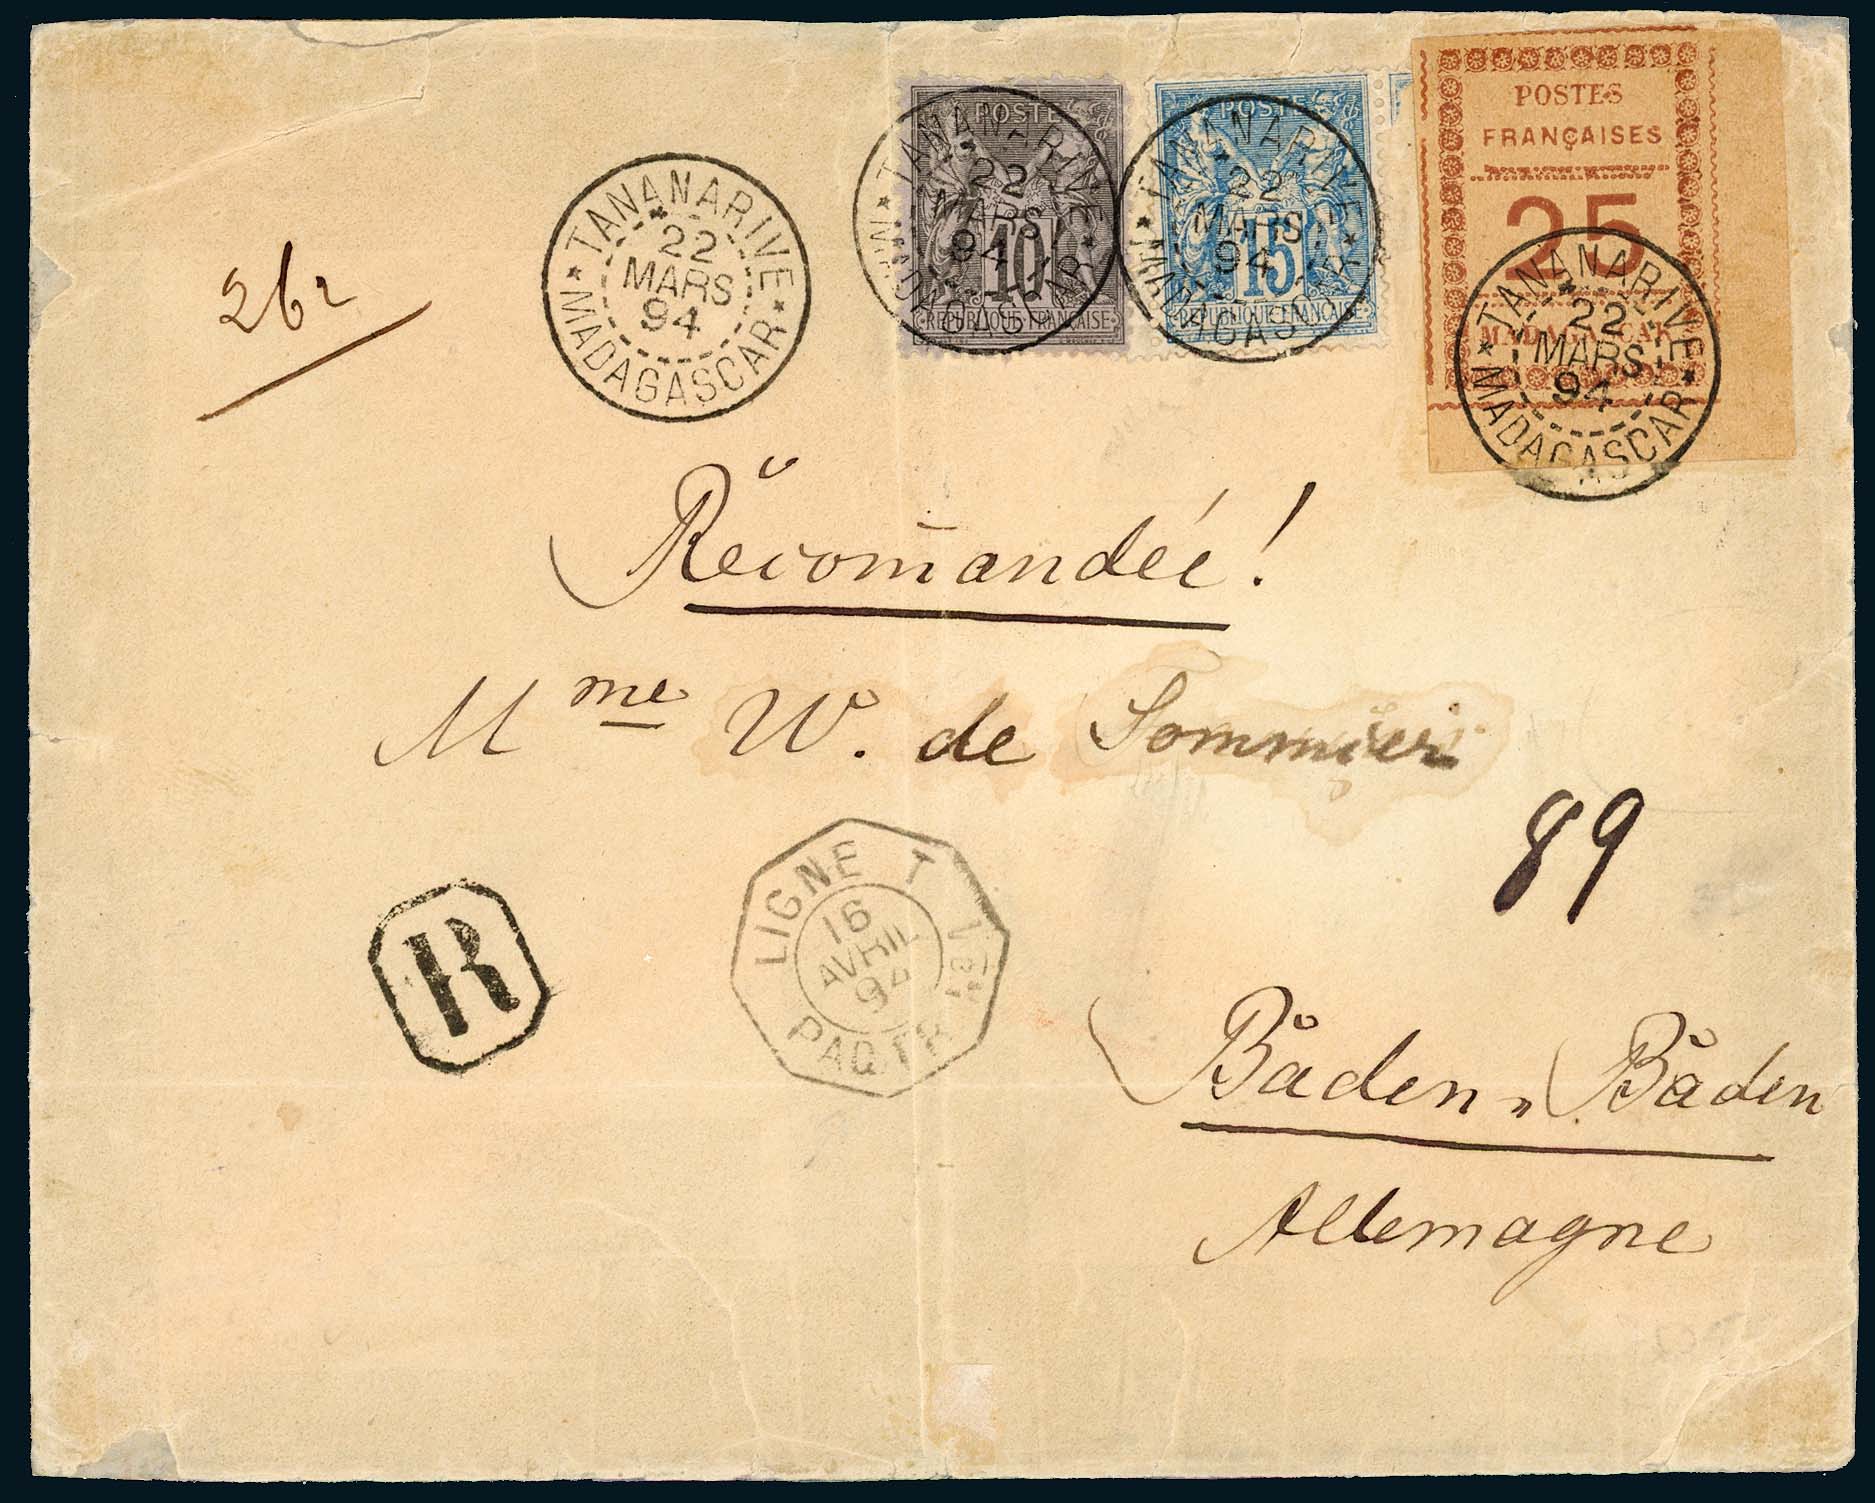 POSTE
10
REPUBLIQUE FRANÇAISE
POSTE
15
REPUBLIQUE FRANÇAISE
POSTES
FRANÇAISES
25
MADAGASCAR
TANANARIVE
22
MARS
94
MADAGASCAR
TANANARIVE
22
MARS
94
MADAGASCAR
TANANARIVE
22
MARS
94
MADAGASCAR
TANANARIVE
22
MARS
94
MADAGASCAR
262
Recomandée!
Mme W. de Sommier
89
LIGNE T
16
AVRIL
94
PAQ. FR
R
Baden-Baden
Allemagne